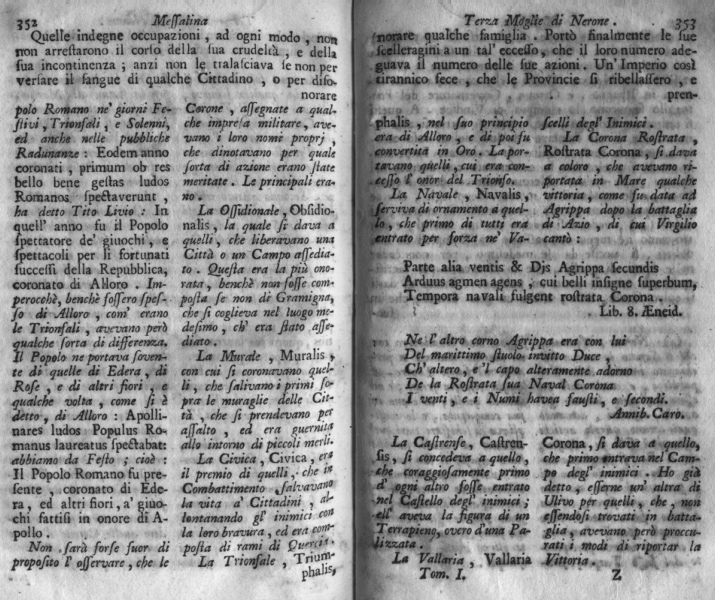 352 Messalina
Quelle indegne occupazioni, ad ogni modo, non
non arrestarono il corso della sua crudeltà, e della
sua incontinenza; anzi non le tralasciava se non per
versare il sangue di qualche Cittadino, o per diso-
norare
polo Romano ne' giorni Fe-
stivi, Trionfali, e Solenni,
ed anche nelle pubbliche
Radunanze: Eodem anno
coronati, primum ob res
bello bene gestas ludos
Romanos spectaverunt,
ha detto Tito Livio: In
quell' anno fu il Popolo
spettatore de' giuochi, e
spettacoli per li fortunati
successi della Repubblica,
coronato di Alloro. Im-
perocchè, benchè fossero spes-
so di Alloro, com' erano
le Trionfali, avevano però
qualche sorta di differenza.
Il Popolo ne portava soven-
te di quelle di Edera, di
Rose, e di altri fiori, e
qualche volta, come si è
detto, di Alloro: Apolli-
nares ludos Populus Ro-
manus laureatus spectabat:
abbiamo da Festo; cioè:
Il Popolo Romano fu pre-
sente, coronato di Ede-
ra, ed altri fiori, a' giuo-
chi fattisi in onore di A-
pollo.
Non sarà forse fuor di
proposito l'osservare, che le
Corone, assegnate a qual-
che impresa militare, ave-
vano i loro nomi proprj,
che dinotavano per quale
sorta di azione erano state
meritate. Le principali era-
no.
La Ossidionale, Obsidio-
nalis, la quale si dava a
quelli, che liberavano una
Città o un Campo assedia-
to. Questa era la più ono-
rata, benchè non fosse com-
posta se non di Gramigna,
che si coglieva nel luogo me-
desimo, ch' era stato asse-
diato.
La Murale, Muralis,
con cui si coronavano quel-
li, che salivano i primi so-
pra le muraglie delle Cit-
tà, che si prendevano per
assalto, ed era guernita
allo intorno di piccoli merli.
La Civica, Civica, era
il premio di quelli, che in
Combattimento salvavano
la vita a' Cittadini, al-
lontanando gl' inimici con
la loro bravura, ed era com-
posta di rami di Quercia.
La Trionfale, Trium-
phalis,
Terza Moglie di Nerone. 353
norare qualche famiglia. Portò finalmente le sue
scelleragini a un tal' eccesso, che il loro numero ade-
guava il numero delle sue azioni. Un' Imperio così
tirannico fece, che le Provincie si ribellassero, e
pren-
phalis, nel suo principio
era di Alloro, e di poi fu
convertita in Oro. La por-
tavano quelli, cui era con-
cesso l' onor del Trionfo.
La Navale, Navalis,
serviva di ornamento a quel-
lo, che primo di tutti era
entrato per forza ne' Va-
scelli degl' Inimici.
La Corona Rostrata,
Rostrata Corona, si dava
a coloro, che avevano ri-
portata in Mare qualche
vittoria, come fu data ad
Agrippa dopo la battaglia
di Azio, di cui Virgilio
cantò:
Parte alia ventis & Djs Agrippa secundis
Arduus agmen agens, cui belli insigne superbum,
Tempora navali fulgent rostrata Corona.
Lib. 8. Æneid.
Ne l' altro corno Agrippa era con lui
Del marittimo stuolo invitto Duce,
Ch' altero, e 'l capo alteramente adorno
De la Rostrata sua Naval Corona
I venti, e i Numi havea fausti, e secondi.
Annib. Caro.
La Castrense, Castren-
sis, si concedeva a quello,
che coraggiosamente primo
d' ogni altro fosse entrato
nel Castello degl' inimici;
ell' aveva la figura di un
Terrapieno, overo d'una Pa-
lizzata.
La Vallaria, Vallaria
Corona, si dava a quello,
che primo entrava nel Cam-
po degl' inimici. Ho già
detto, esserne un' altra di
Ulivo per quelli, che, non
essendosi trovati in batta-
glia, avevano però proccu-
rati i modi di riportar la
Vittoria.
Tom. I. Z